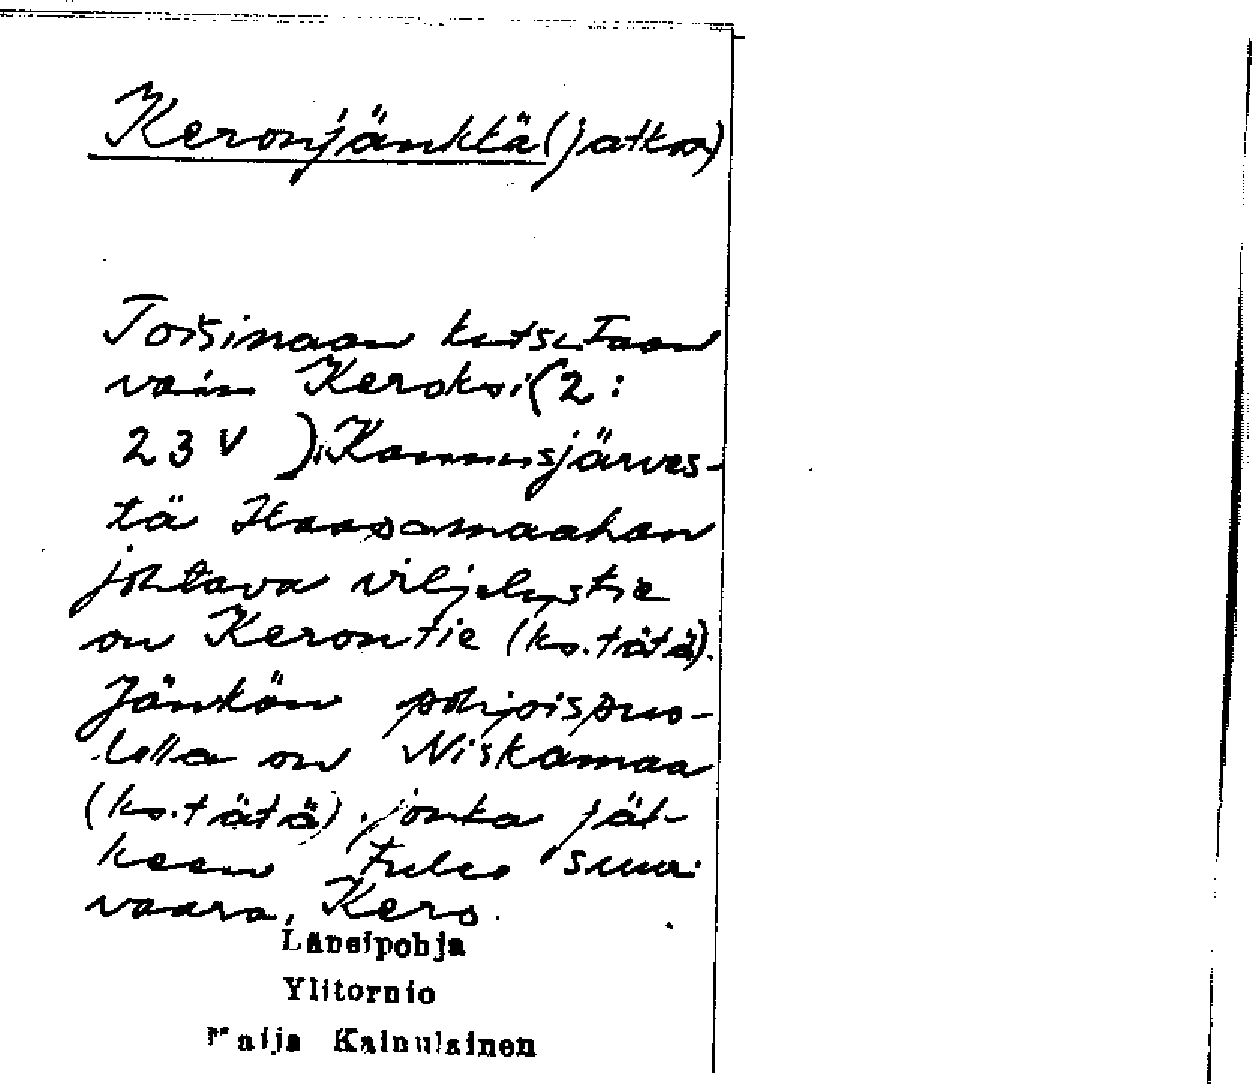 Keronjänktä (jatkoa)
Toisinaan kutsutaan
vain Keroksi (2:
23 V ). Kannusjärves-
tä Haapamaahan
johtava viljelystie
on Kerontie (ks. tätä).
Jänkän pohjoispuo-
lella on Niskamaa
(ks. tätä), jonka jäl-
keen tulee suuri
vaara, Kero.
Länsipohja
Ylitornio
Maija Kainulainen